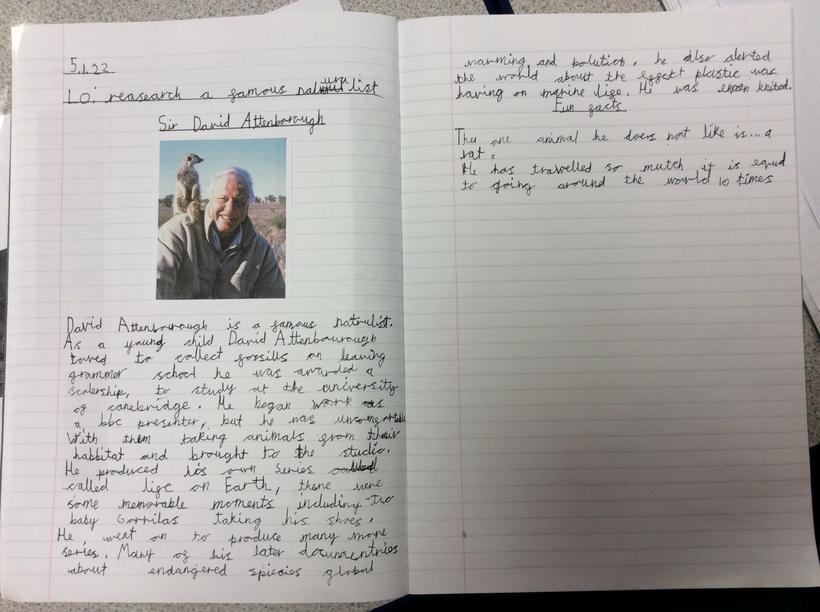 5.1.22
Lo: reasearch a famous naturalist
Sir David Attenborough
David Attenborough is a famous natrulist.
As a young child David Attenbourough
loved to collect fossills on leaving
grammer school he was awarded a
scolership, to study at the university
of canebridge. He began work as
a bbc presenter, but he was
With them taking animals from their
habbitat and brought to the studio.
He produced his own series
called life on Earth, there were
some memorable moments including two
baby Gorrilas taking his shoes.
He went on to produce many more
series. Many of his later documentries
about endangered spiecies global
warming and polution, he also alerted
the world about the effect plastic was
having on marine life. He was knited.
Fun facts
The one animal he does not like is... a
rat.
He has travelled so mutch it is equal
to going around the world 10 times